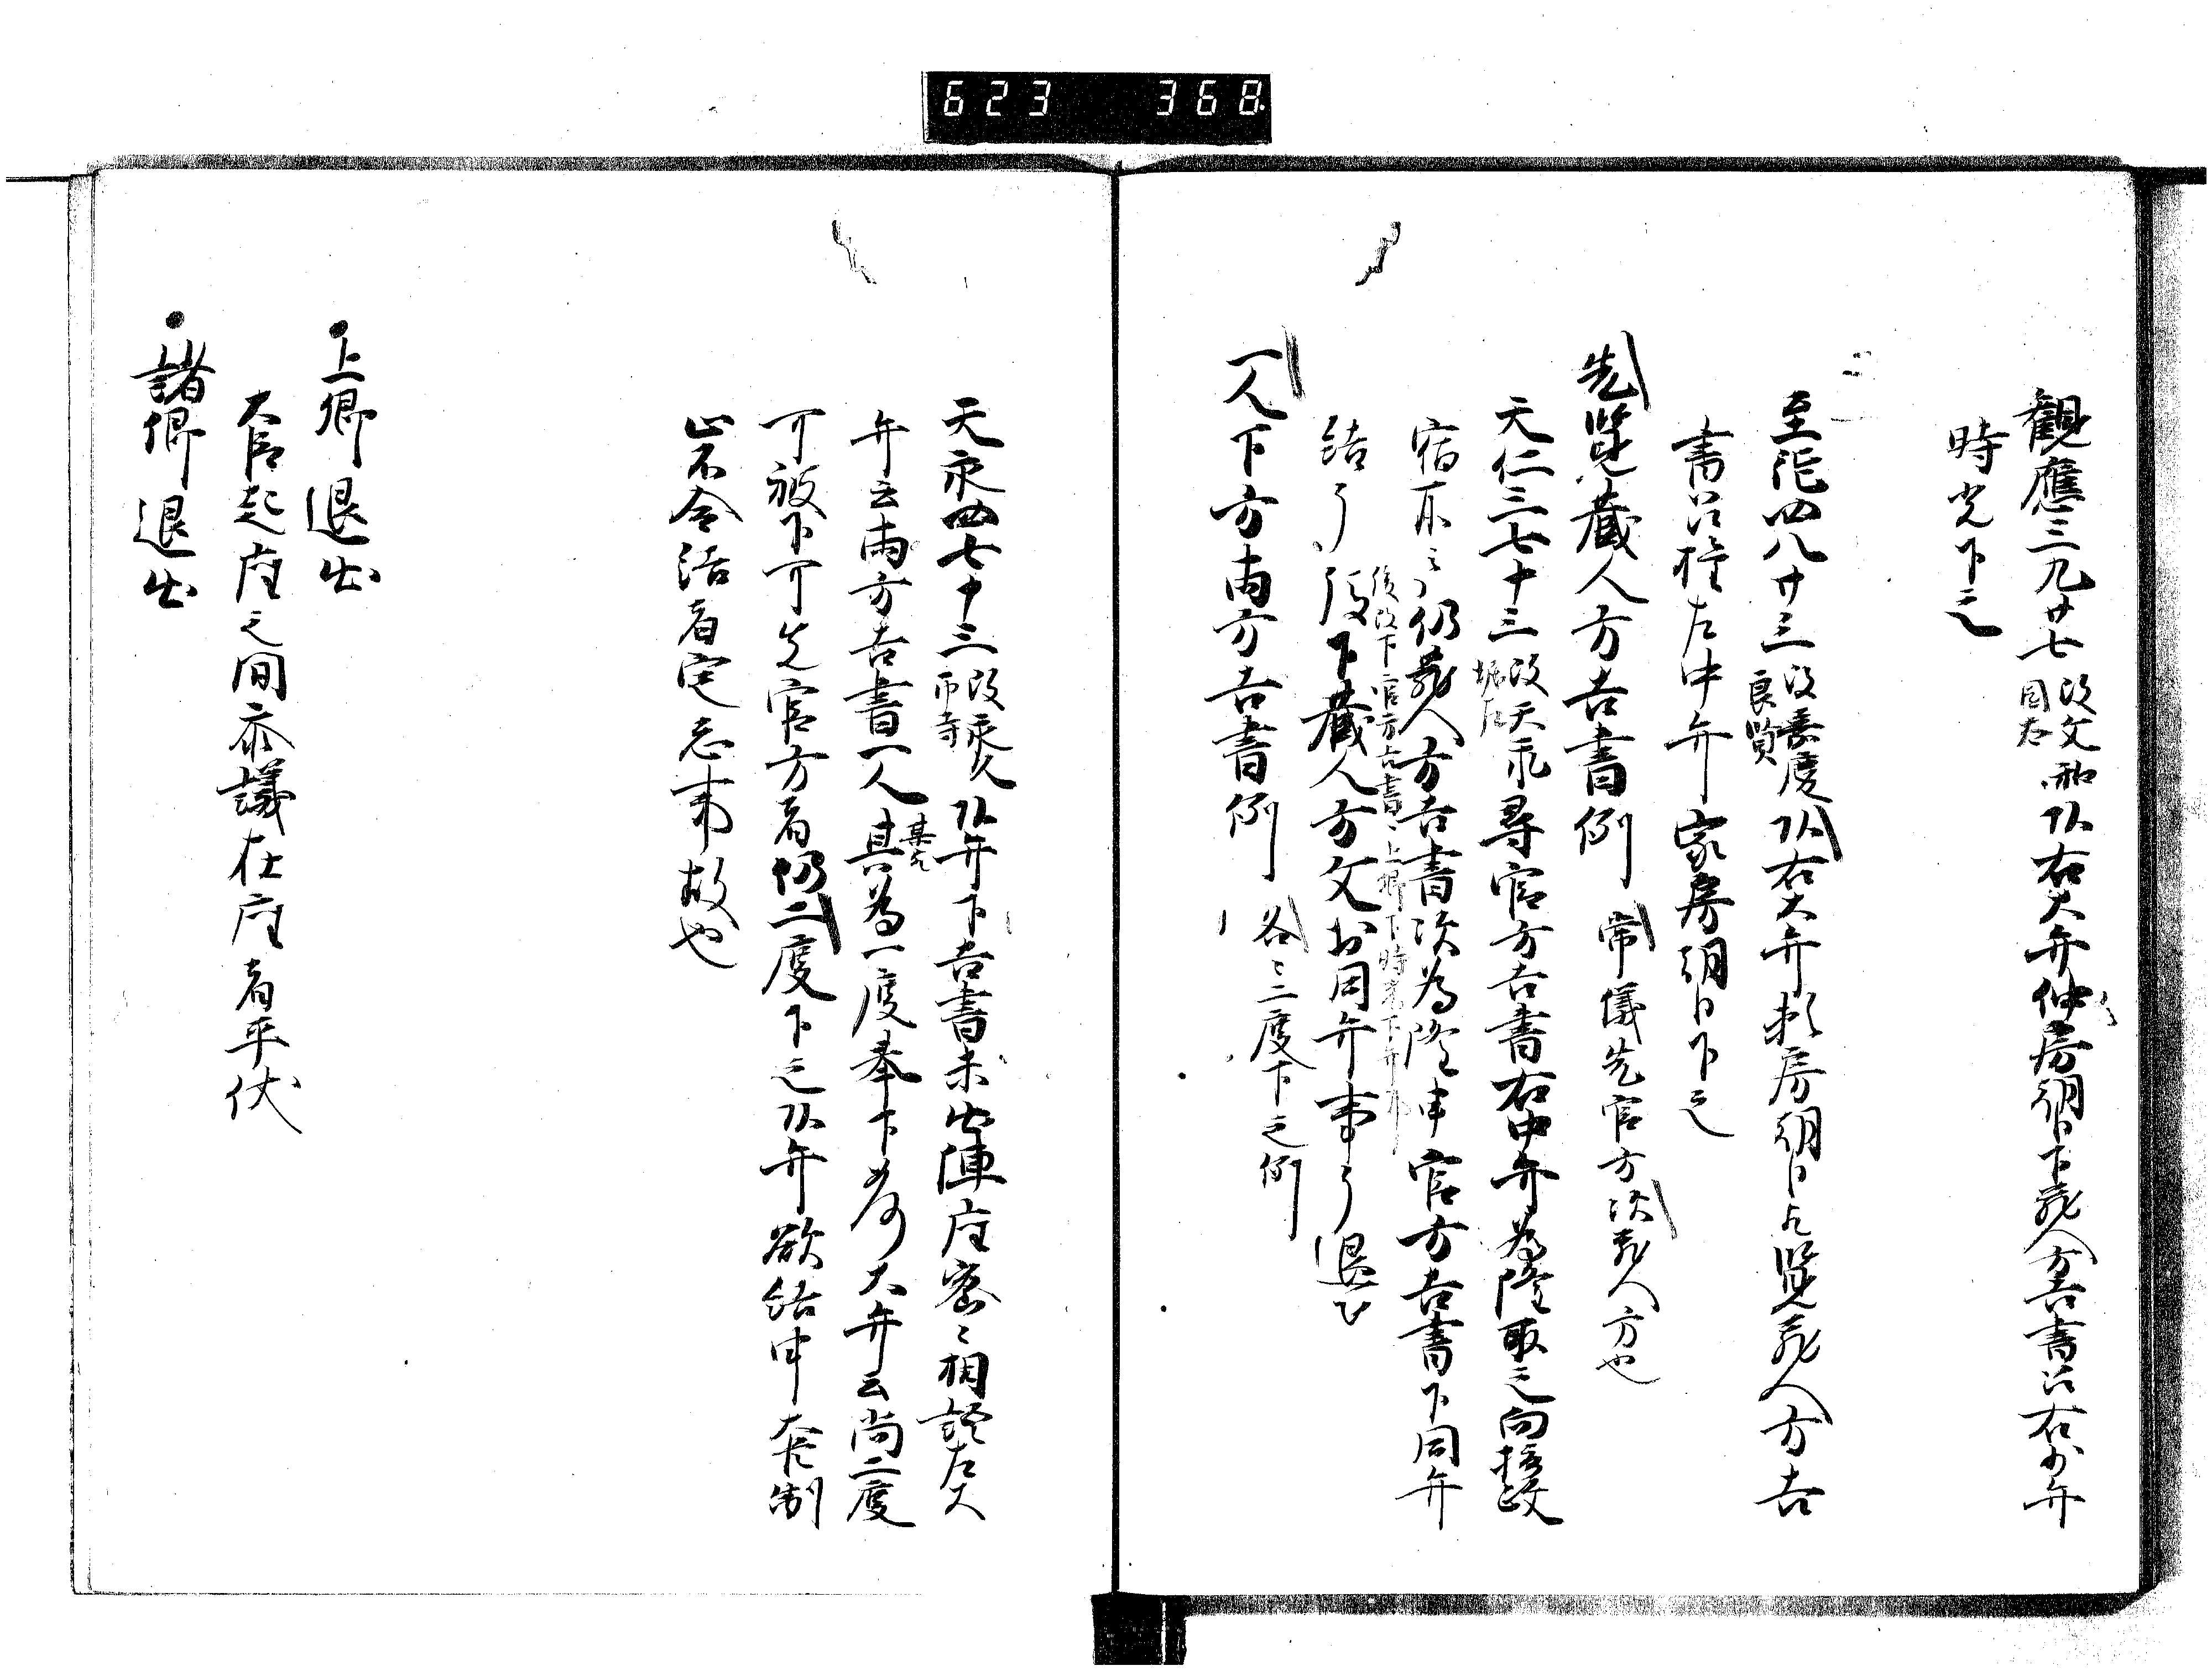 623 368
観應三九廿七 改文和 国太 頭右大弁仲房朝臣下蔵人方吉書於右少弁
時光下之
至徳四八廿三 改嘉慶 良賢 頭右大弁頼房朝臣先覧蔵人方吉
書於権左中弁家房朝臣下之
先覧蔵人方吉書例 常儀先官方次蔵人方也
天仁三七十三 改天永 堀左 尋官方吉書右中弁為隆取之向摂政
宿所云々仍蔵人方吉書次為隆申官方吉書下同弁
後改下官方吉書上卿下時光下弁
結了後下蔵人方文於同弁事了退出
一人下方両方吉書例 各々二度下之例
天永四七十三 改永久 師寺 頭弁下吉書未出陣座密々相語左大
弁云両方吉書一人其為一度奉下如何大弁云尚二度
可被下可先官方者仍二度下之頭弁欲結申大臣制
止不令結者定忘事故也
上卿退出
大臣起座之間参議在座者平伏
諸卿退出